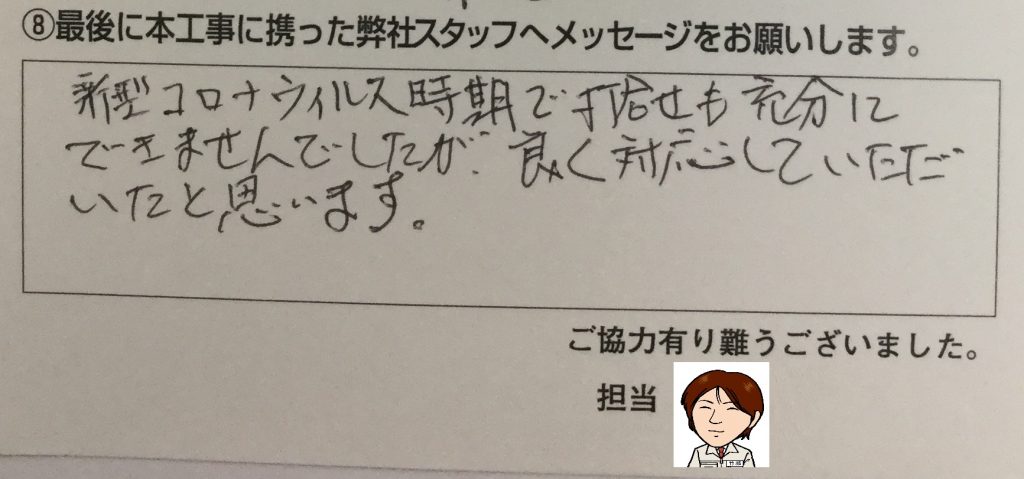 ⑧最後に本工事に携った弊社スタッフへメッセージをお願いします。
新型コロナウィルス時期で打合せも充分に
できませんでしたが、良く対応していただ
いたと思います。
ご協力有り難うございました。
担当